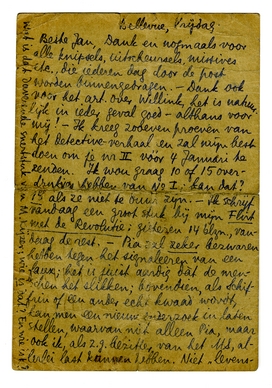 Bellevue, Vrijdag
Beste Jan, Dank en nogmaals voor
alle knipsels, uitscheursels, missives
etc. die iederen dag door de post
worden binnengedragen. — Dank ook
voor het art. over Willink, het is
lijk in ieder geval goed — althans voor
mij! — Ik kreeg zooeven proeven van
het detective-verhaal en zal mijn best
doen om te nr II vóór 4 Januari te
zenden. Ik wou graag 10 of 15 over-
drukken hebben van No I; kan dat?
15 als ze niet te duur zijn. — Ik schrijf
vandaag een groot stuk bij mijn Flirt
met de Revolutie; gisteren 14 blzn, van-
daag de rest. — Pia zal zeker bezwaren
hebben tegen het signaleeren van een
faux; het is juist aardig dat de men-
schen het slikken; bovendien, als
of een ander echt kwaad wordt,
kan men een nieuw onderzoek in laten
stellen, waarvan niet alleen Pia, maar
ook ik, als z.g. bezitter van het Ms, al-
lerlei last kunnen hebben. Niet levens-
Wat is dat